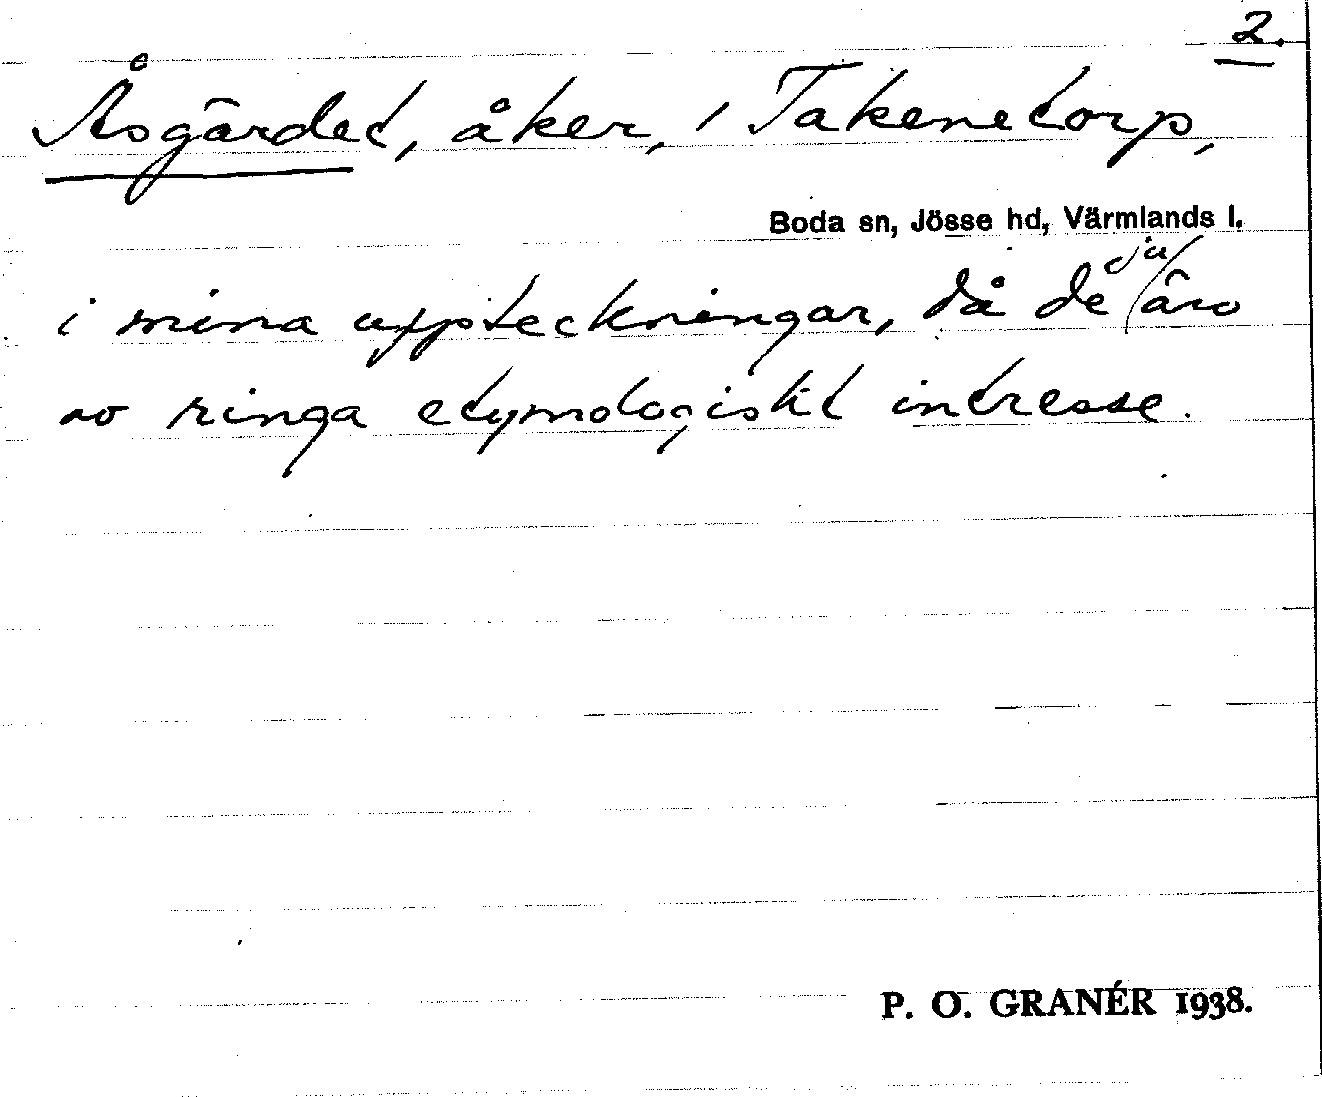 2.
Åsgärdet, åker, i Takenetorp,
Boda sn, Jösse hd, Värmlands l.
i mina uppteckningar, då de ju äro
av ringa etymologiskt intresse.
P. O. GRANÉR 1938.